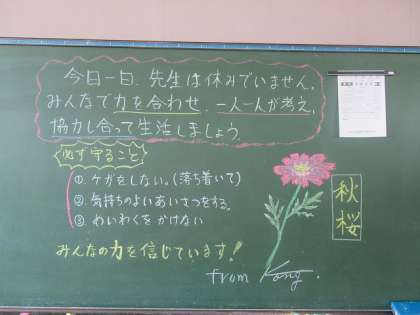 今日一日、先生は休みでいません。
みんなで力を合わせ、一人一人が考え、
協力し合って生活しましょう。
必ず守ること
①. ケガをしない。(落ち着いて)
②. 気持ちのよいあいさつをする。
③. めいわくをかけない
みんなの力を信じています!
from
秋桜